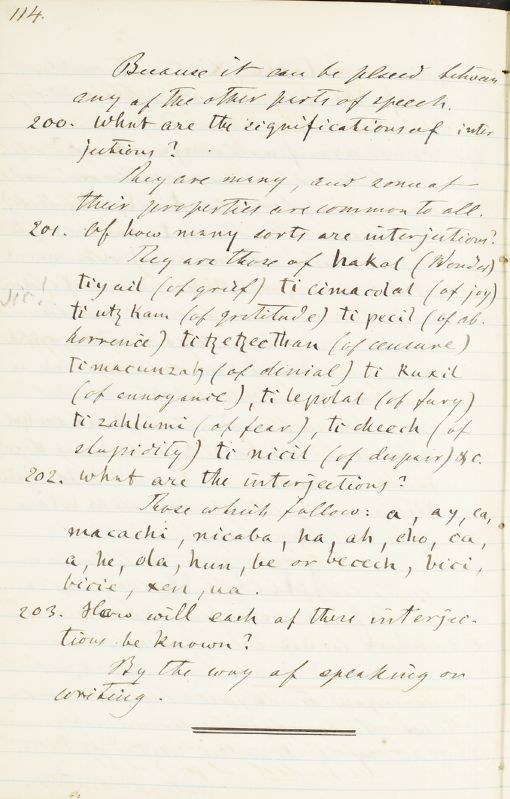 114.
Because it can be placed between
any of the other parts of speech.
200. What are the significations of inter
jections?
They are many, and some of
their properties are common to all.
201. Of how many sorts are interjections?
They are those of hakal (Wonder)
tiyail (of grief) ti cimacolal (of joy)
ti utzkam (of gratitude) ti pecil (of ab-
horrence) ti tzetzecthan (of censure)
ti macunzah (of denial) ti kuxil
(of annoyance), ti lepolal (of fury)
ti zahlumi (of fear), ti cheech (of
stupidity) ti nicil (of despair) &c.
202. What are the interjections?
Those which follow: a, ay, ca,
macachi, nicaba, ha, ah, eho, ca,
a, he, ola, hun, be or becech, bici,
bicie, xen, ua.
203. How will each of these interjec-
tions be known?
By the way of speaking or
writing.